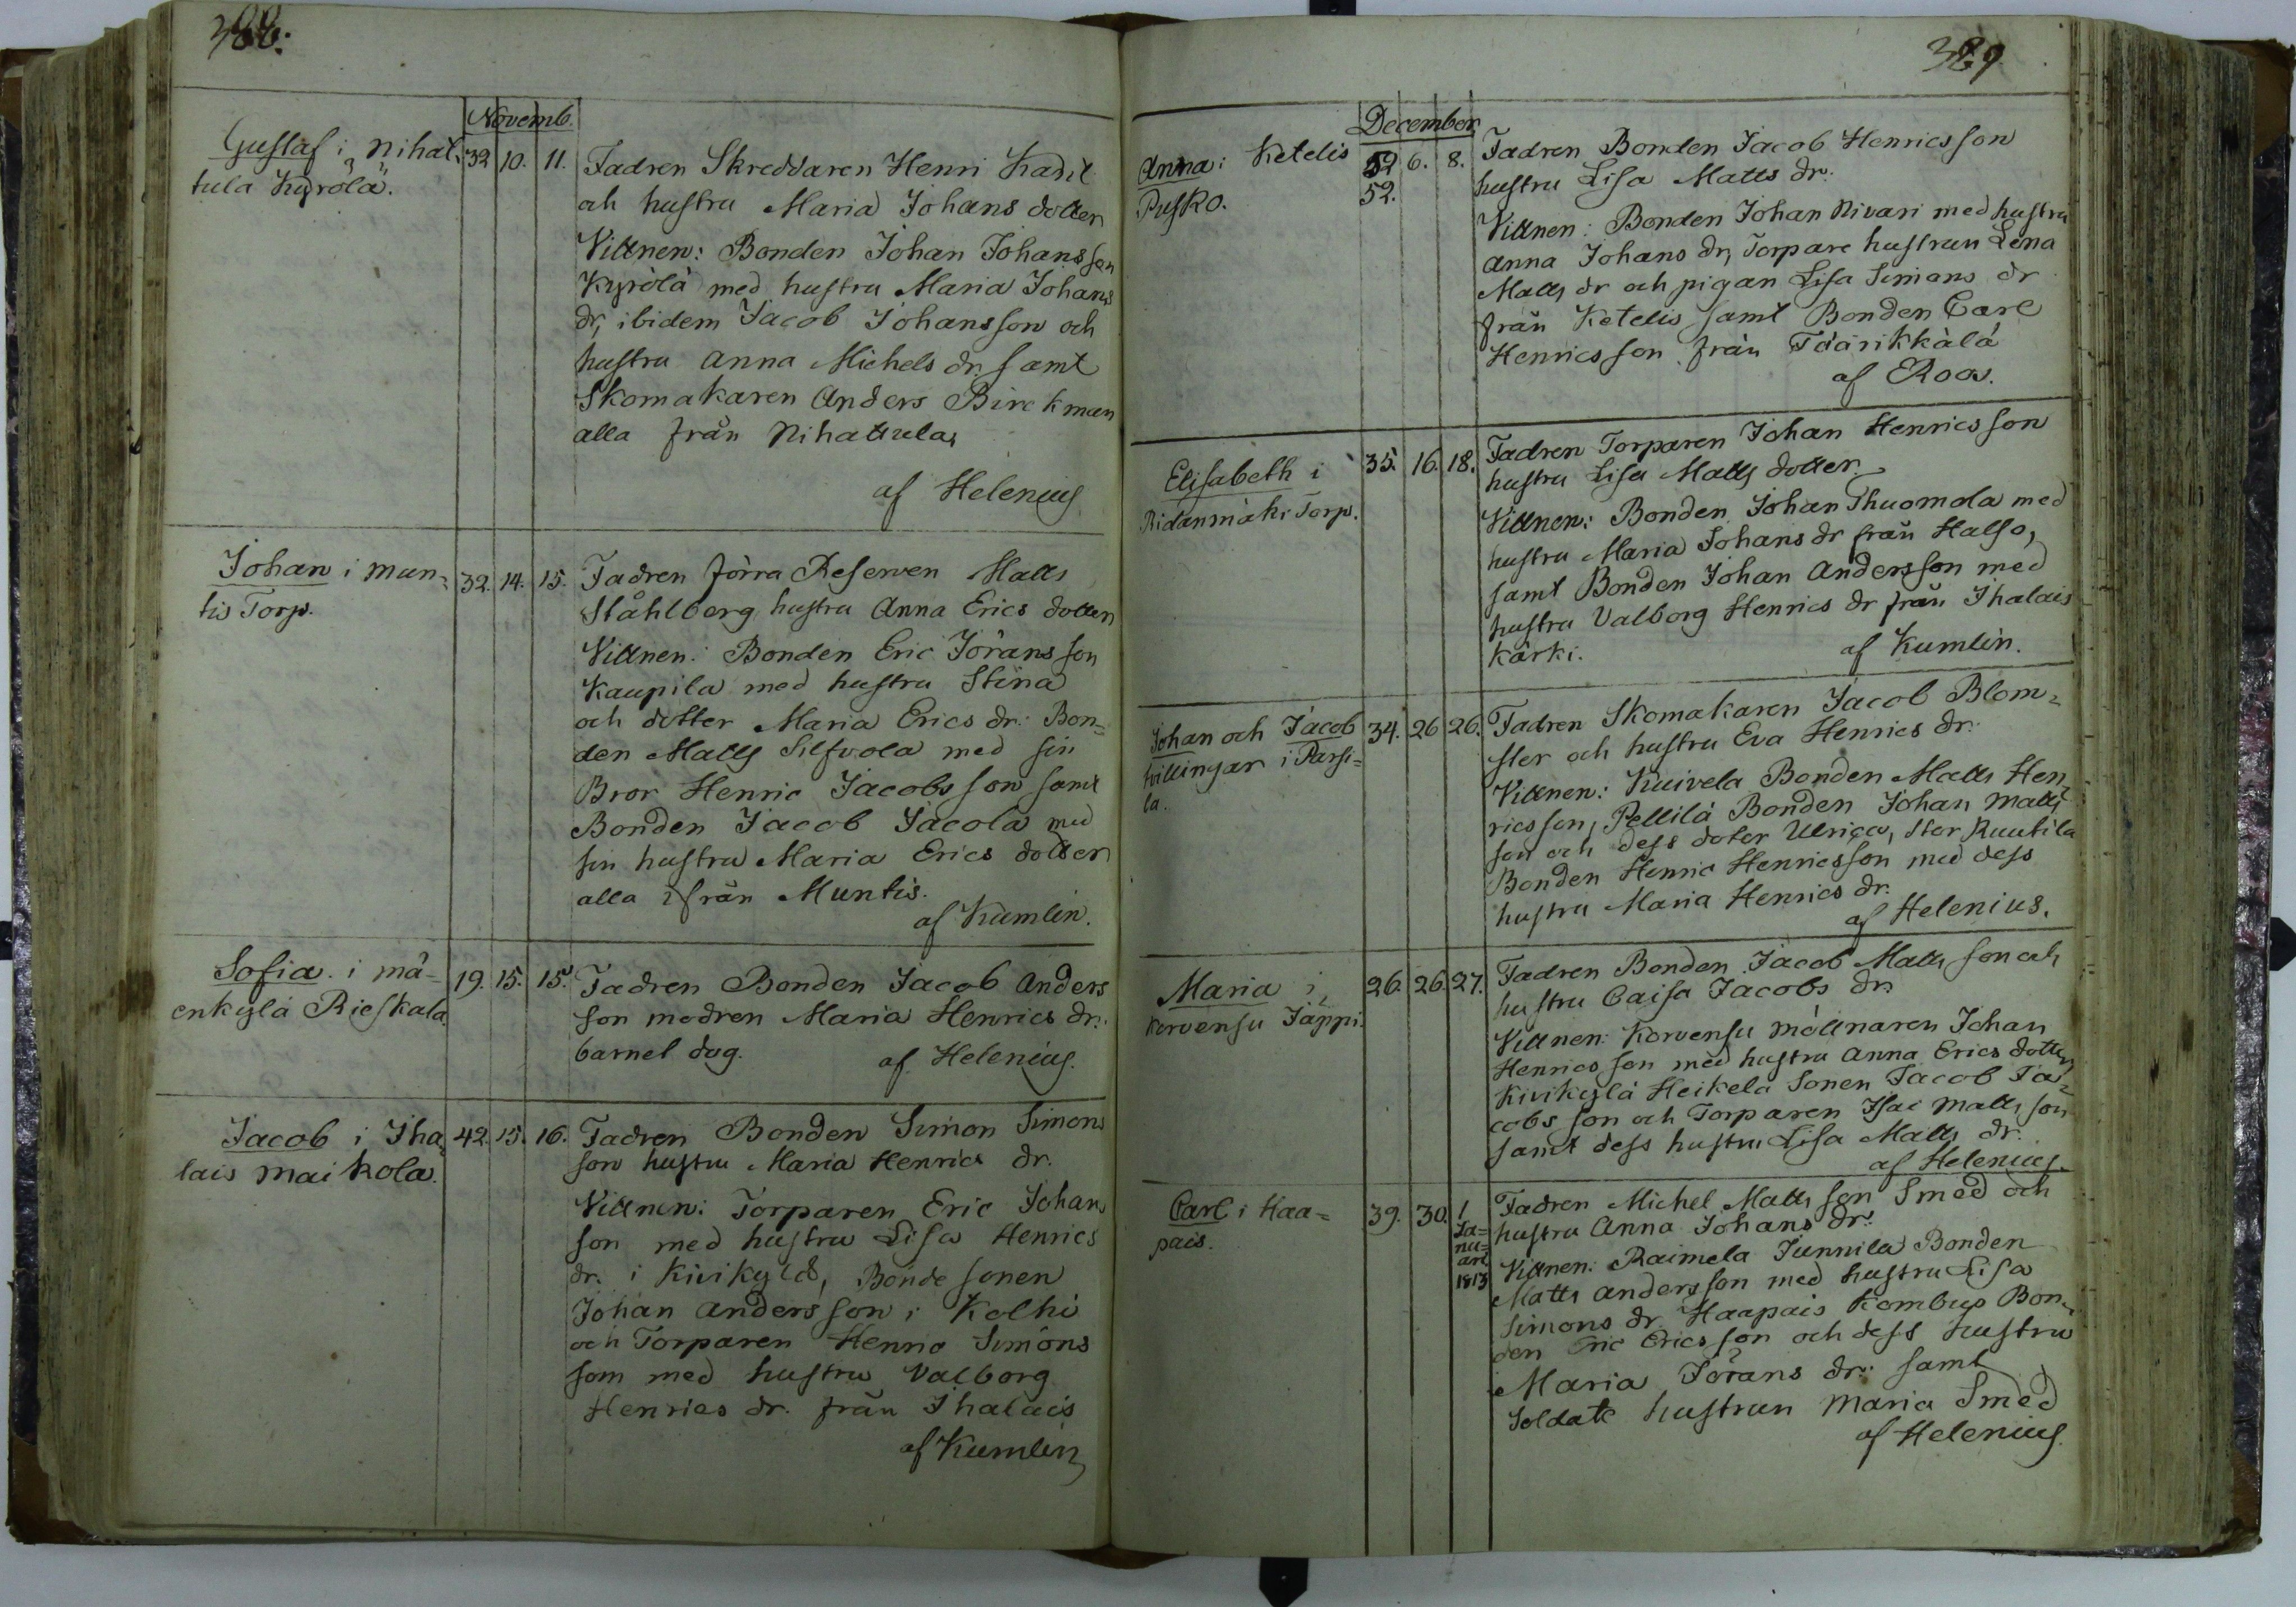 388.
Novemb.
Gustaf i Nihat-
tula Kyrölä.
32 10. 11. Fadren Skreddaren Henri Kadit
och hustru Maria Johans dotter
Vittnen: Bonden Johan Johansson
Kyrölä med hustru Maria Johans
dr, ibidem Jacob Johansson och
hustru Anna Michels dr, samt
Skomakaren Anders Birckman
alla från Nihattula,
af Helenius
Johan i Mun-
tis Torp.
32. 14. 15. Fadren förra Reserven Matts
Ståhlberg hustru Anna Erics dotter
Vittnen: Bonden Eric Jöransson
Kaupila med hustru Stina
och dotter Maria Erics dr: Bon-
den Matts Silfvola med sin
Bror Henric Jacobsson samt
Bonden Jacob Jacola med
sin hustru Maria Erics dotter
alla ifrån Muntis.
af Kumlin.
Sofia i mä-
enkylä Rieskala.
19. 15. 15. Fadren Bonden Jacob Anders
son modren Maria Henrics dr.
barnet dog.
af Helenius.
Jacob i Iha
lais Maikola.
42. 15. 16. Fadren Bonden Simon Simons
son hustru Maria Henrics dr.
Vittnen: Torparen Eric Johans
son med hustru Lisa Henrics
dr. i Kivikylä, Bonde sonen
Johan Andersson i Kolhi
och Torparen Henric Simons
son med hustru Valborg
Henrics dr. från Ihalais
af Kumlin
389
December
Anna i Ketelis
Pusko.
52 6. 8. Fadren Bonden Jacob Henricsson
52.
hustru Lisa Matts dr:
Vittnen: Bonden Johan Nivari med hustru
Anna Johans dr, Torpare hustrun Lena
Matts dr och pigan Lisa Simons dr
från Ketelis samt Bonden Carl
Henricsson från Täärikkälä
af Roos.
Elisabeth i
Ridanmäki Torp.
35. 16. 18. Fadren Torparen Johan Henricsson
hustru Lisa Matts dotter.
Vittnen: Bonden Johan Thuomola med
hustru Maria Johans dr från Halso,
samt Bonden Johan Andersson med
hustru Valborg Henrics dr från Ihalais
kärki.
af Kumlin.
Johan och Jacob
tvillingar i Pursi-
la.
34. 26 26. Fadren Skomakaren Jacob Blom-
ster och hustru Eva Henrics dr:
Vittnen: Kuivela Bonden Matts Hen
ricsson, Pellilä Bonden Johan Matts
son och dess doter Ulrica, Stor Ruutila
Bonden Henric Henricsson med dess
hustru Maria Henrics dr:
af Helenius.
Maria i
Korvensu Jäppi.
26. 26. 27. Fadren Bonden Jacob Matts son och
hustru Caisa Jacobs dr.
Vittnen: Korvensu möllnaren Johan
Henricsson med hustru Anna Erics dotter,
Kivikylä Heikela Sonen Jacob Ja-
cobs son och Torparen Isac Matts son
samt dess hustru Lisa Matts dr.
af Helenius.
Carl i Haa-
pais.
39. 30. 1
Ja-
nu-
ari
1813
Fadren Michel Matts son Smed och
hustru Anna Johans dr.
Vittnen: Raimela Junnila Bonden
Matts Andersson med hustru Lisa
Simons dr Haapais Kombus Bon-
den Eric Ericsson och dess hustru
Maria Jörans dr: samt
Soldate hustrun Maria Smed
af Helenius